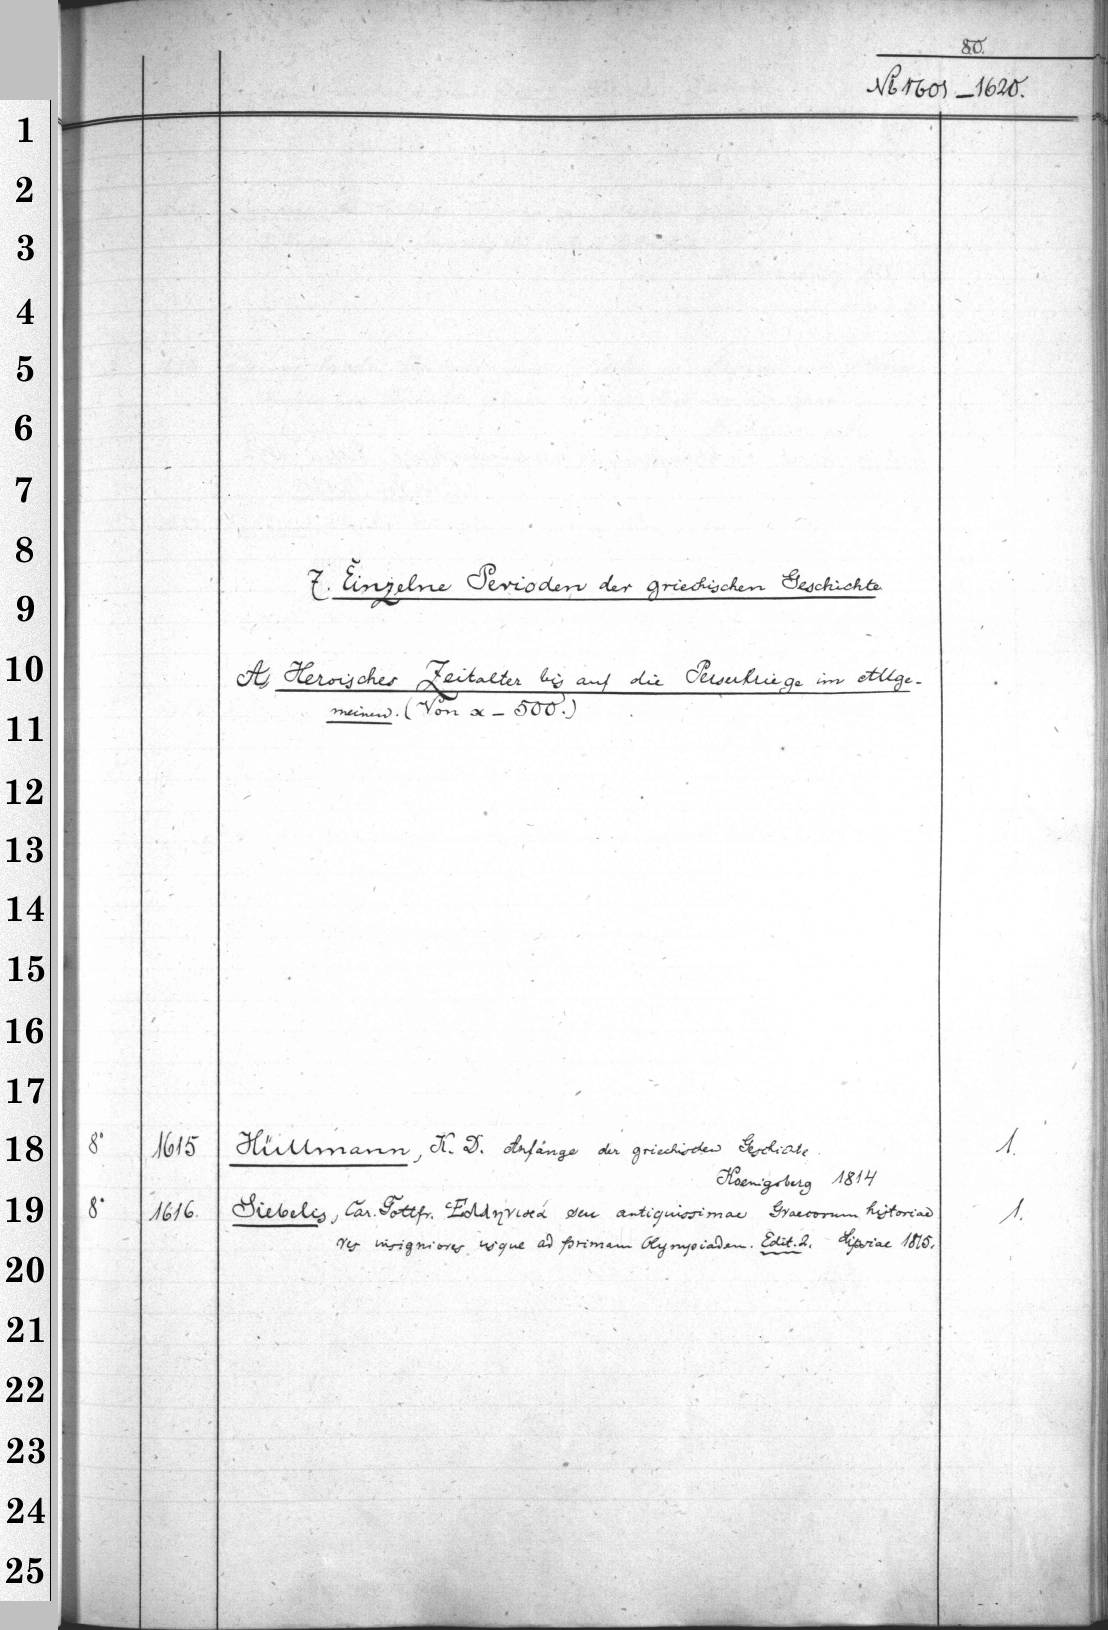 80.
№ 1601 – 1620.
1
2
3
4
5
6
7
8
7. Einzelne Perioden der griechischen Geschichte
9
10
A, Heroisches Zeitalter bis auf die Perserkriege im Allge-
meinen. (Von x – 500.)
11
12
13
14
15
16
17
18 8° 1615 Hüllmann, K. D. Anfänge der griechischen Geschichte. 1.
Koenigsberg 1814
19 8° 1616. Siebelis, Car. Gottfr. Ελληνικά seu antiquissimae Graecorum historiae 1.
res insigniores usque ad primam Olympiadem. Edit. 2. Lipsiae 1815.
20
21
22
23
24
25